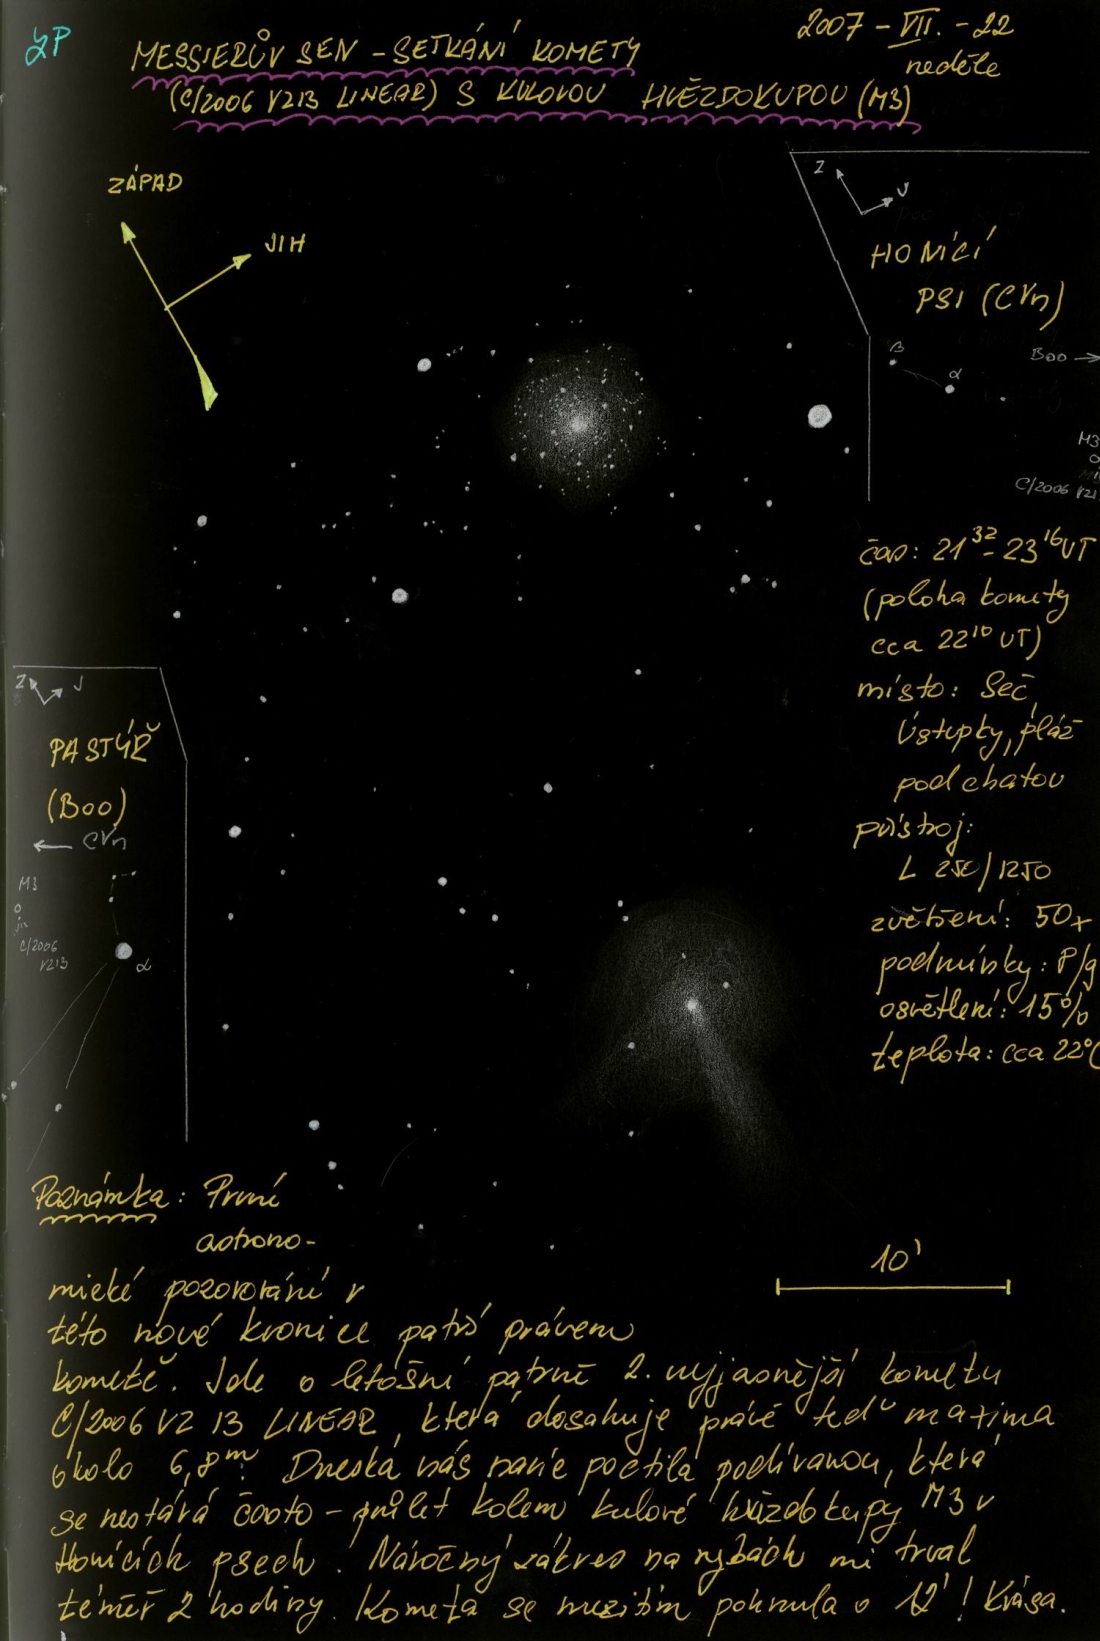 ŽP
2007 - VII. - 22
neděle
MESSIERŮV SEN - SETKÁNÍ KOMETY
(C/2006 VZ13 LINEAR) S KULOVOU HVĚZDOKUPOU (M3)
ZÁPAD
JIH
Z
J
HONÍCÍ
PSI (CVn)
β
α
Boo →
M3
C/2006 VZ1
čas: 21³² - 23¹⁶ UT
(poloha komety
cca 22¹⁰ UT)
místo: Seč
Ústupky, pláž
pod chatou
přístroj:
L 250/1250
zvětšení: 50x
podmínky: P/g
osvětlení: 15%
teplota: cca 22°C
Z
J
PASTÝŘ
(Boo)
← CVn
M3
C/2006
VZ13
α
10'
Poznámka: První
astrono-
mické pozorování v
této nové kronice patří právem
kometě. Jde o letošní patrně 2. nejjasnější kometu
C/2006 VZ 13 LINEAR, která dosahuje právě teď maxima
okolo 6,8ᵐ. Dneska nás navíc poctila podívanou, která
se nestává často - průlet kolem kulové hvězdokupy M3 v
Honících psech! Náročný zákres na rybách mi trval
téměř 2 hodiny. Kometa se mezitím pohnula o 12'! Krása.